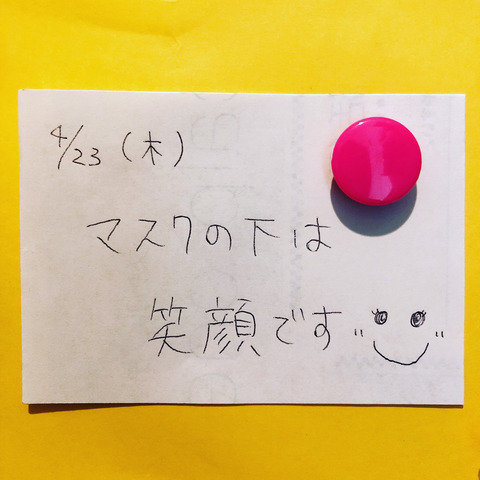 4/23 (木)
マスクの下は
笑顔です